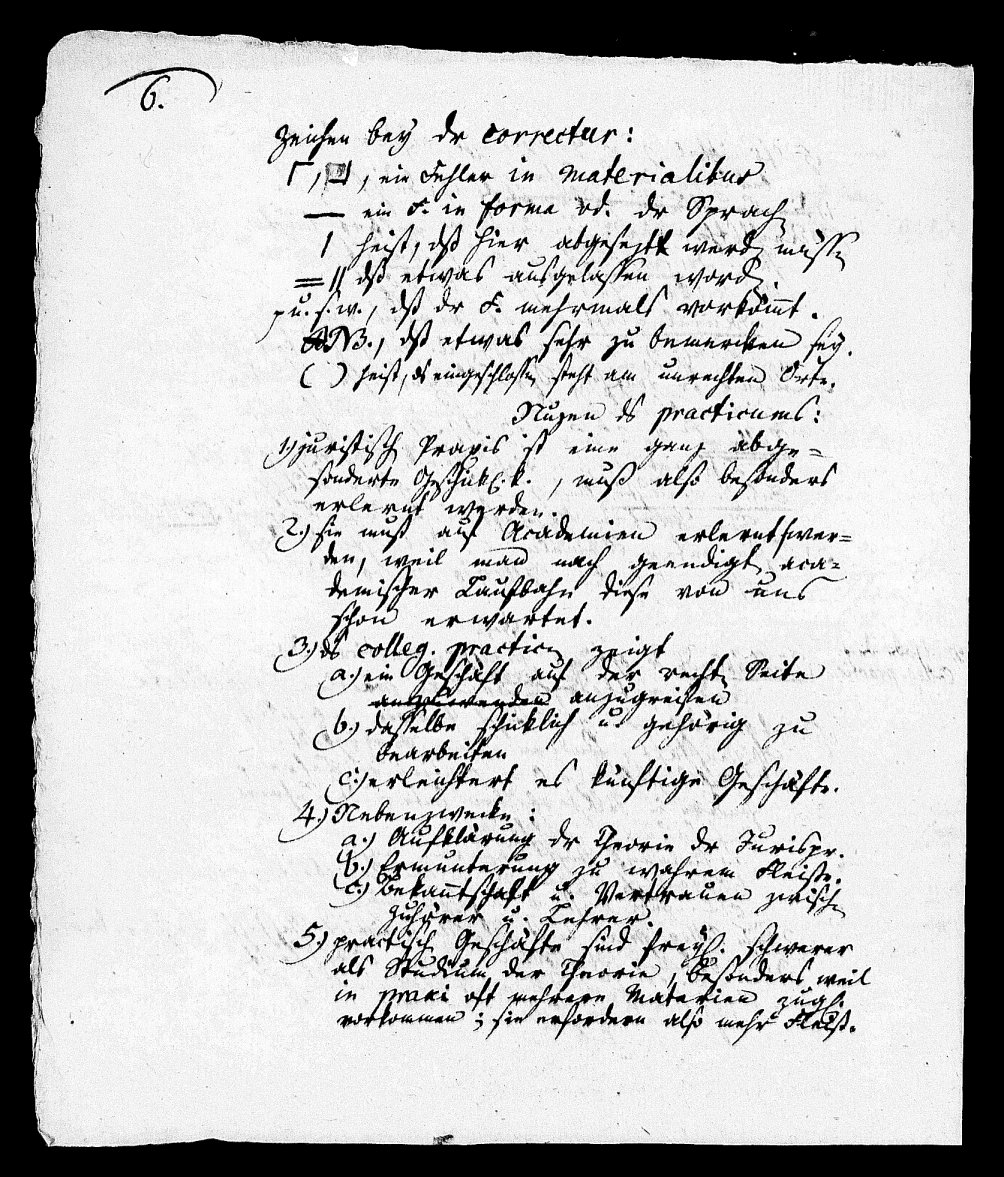 6.
Zeichen bey dr correctur:
Γ, ⅃, ein Fehler in materialibus
— ein F. in forma od. dr Sprach
| heist, dß hier abgesezt werd müsse
= || dß etwas ausgelassen word
p u. s. w., dß dr F. mehrmals vorkom̅t.
NB., dß etwas sehr zu bemercken sey.
( ) heist, ds eingeschlossn steht am unrechten Orte.
Nuzen ds practicums:
1.) juristisch Praxis ist eine ganz abge=
sonderte Geschickl.k., muß also besonders
erlernt werden.
2.) sie muß auf Academien erlernt wer=
den, weil man nach geendigt aca=
demischer Laufbahn diese von uns
schon erwartet.
3.) ds colleg. practicu zeigt
a.) ein Geschäft auf der recht Seite
anzuwenden anzugreifen
b.) dasselbe schicklich u. gehörig zu
bearbeiten
c.) erleichtert es künftige Geschäfte.
4.) Nebenzwecke:
a.) Aufklärung dr Theorie dr Jurispr.
b.) Ermunterung zu wahrem Fleiße.
c.) Bekan̅tschaft u. Vertrauen zwisch
Zuhörer u. Lehrer.
5.) practisch Geschäfte sind freyl. schwerer
als Studium der Theorie, besonders weil
in praxi oft mehrere Materien zugl.
vorkommen; sie erfordern also mehr Fleiß.